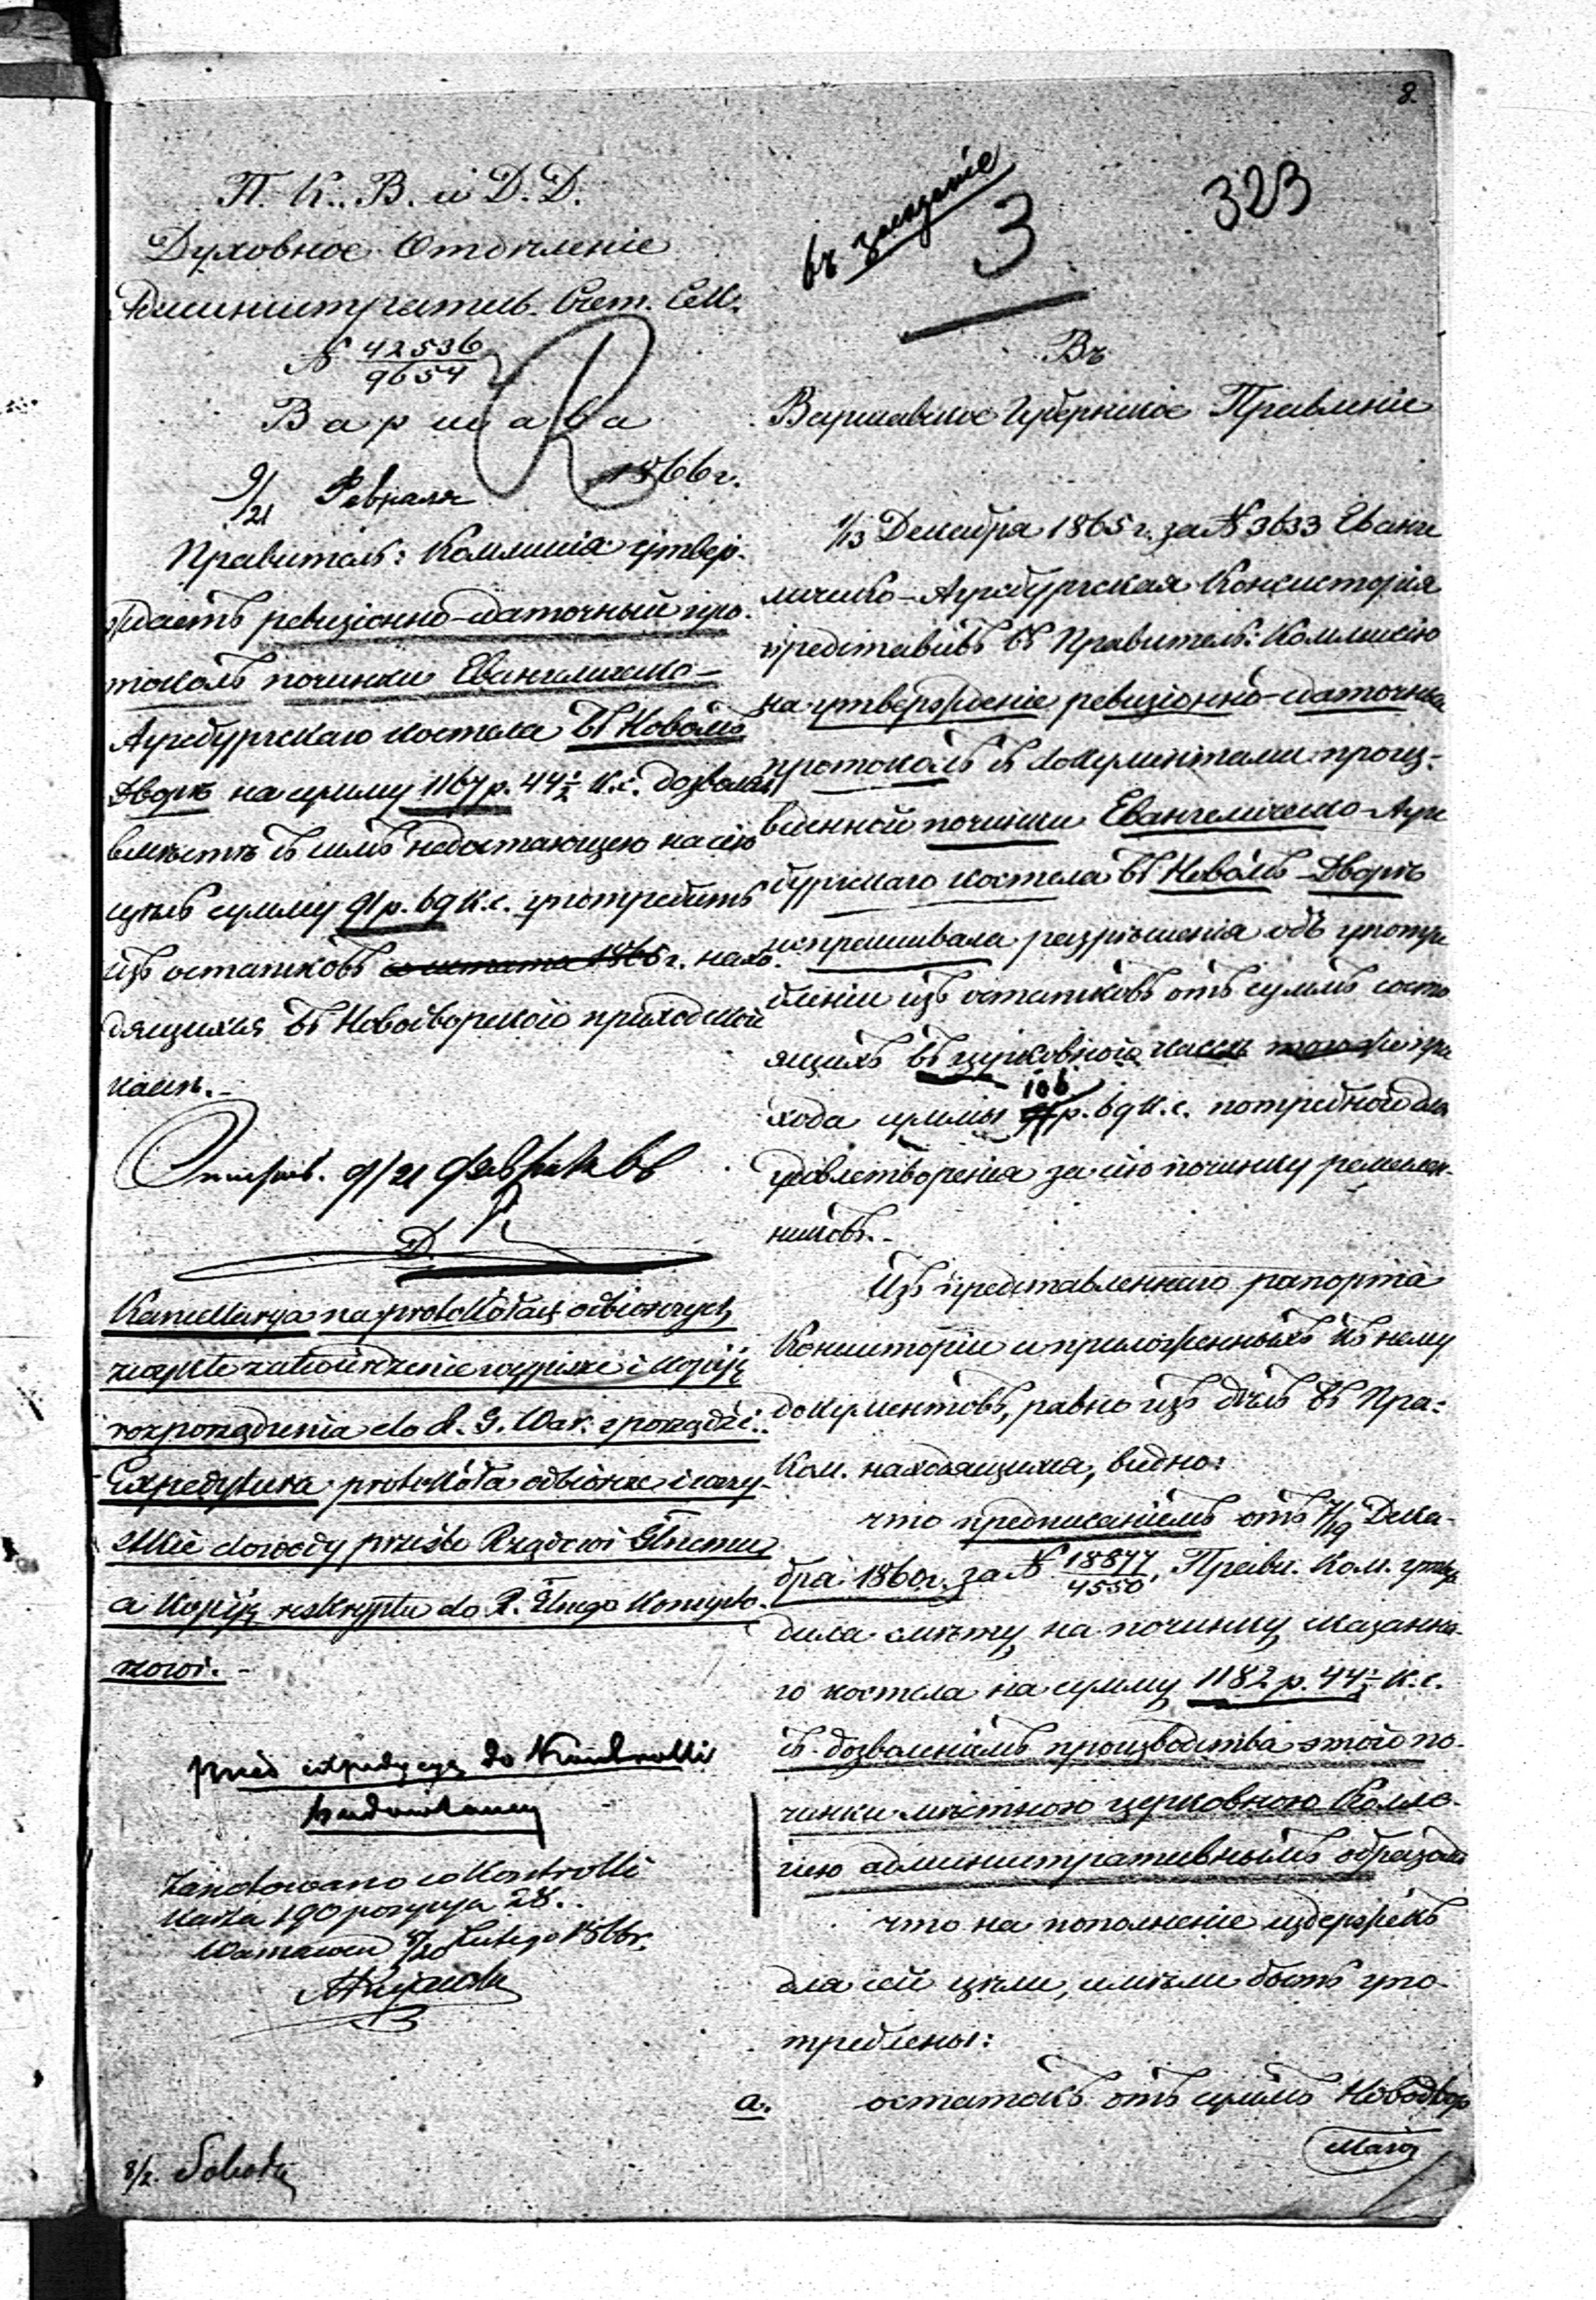 8.
323
въ заседаніе
3
П. К. В. и Д. Д.
Духовное Отдѣленіе
Административ. Счет. Сек.
N 42536
9654
Варшава
9/21 Февраля 1866 г.
Правитель: Коммисія утвер-
ждаетъ ревизіонно-сдаточный про-
токолъ починки Евангелическо-
Аугсбургскаго костела въ Новомъ
Дворѣ на сумму 1167 р. 44½ к. с. дозволяя
вмѣстѣ съ симъ недостающею на сію
цѣль сумму 91 р. 69 к. с. употребить
изъ остатковъ 1865 г. нахо-
дящихся въ Новодворской приходской
кассѣ.-
9/21 Февраля 66
D.
Kancellarya na protokółach odbiorczych
zatwierdzenie wypisze i kopiję
rozporządzenia do R. G. War: sporządzi.
Expedytura protokóła odbiorcze i wszy-
stkie dowody prześle Rządowi Głnemu
a kopiję reskryptu do R. Głnego Konsysto-
rzowi.-
przed expedycyą do Kontrolli
budowlanej
Zanotowano w Kontrolli
karta 190 pozycya 28.
Warszawa 8/20 Lutego 1866 r.
8/2. Sobota
Въ
Варшавское Губернское Правленіе
1/13 Декабря 1865 г. за N 3633 Еванге
лическо-Аугсбургская Консисторія
представивъ въ Правитель: Коммисію
на утвержденіе ревизіонно-сдаточный
протоколъ съ документами произ-
веденной починки Евангелическо-Аугс
бургскаго костела въ Новомъ-Дворѣ
испрашивала разрѣшенія объ употре
бленіи изъ остатковъ отъ суммъ состо
ящихъ въ церковной кассѣ того же при
хода суммы 106 р. 69 к. с. потребной для
удовлетворенія за сію починку ремеслен-
никовъ.-
Изъ представленнаго рапорта
Консисторіи и приложенныхъ къ нему
документовъ, равно изъ дѣлъ въ Пра:
Ком. находящихся, видно:
что предписаніемъ отъ 7/19 Дека-
бря 1860 г. за N 18877
4550, Прави. Ком. утвер
дила смѣту на починку сказанна-
го костела на сумму 1182 р. 44½ к. с.
съ дозволеніемъ производства этой по-
чинки мѣстною церковною Колле-
гіею административнымъ образомъ
что на пополненіе издержекъ
для сей цѣли, имѣли быть упо-
треблены:
а. остатокъ отъ суммъ Новодвор